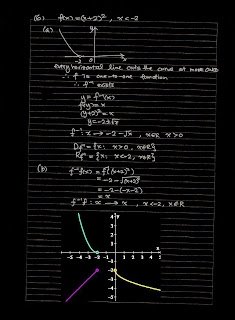 (6) f(x)=(x+2)², x<-2
(a) y
-2 0 x
every horizontal line cuts the curve at most once
∴ f is one-to-one function
∴ f⁻¹ exists
y = f⁻¹(x)
f(y) = x
(y+2)² = x
y = -2±√x
f⁻¹: x → -2-√x, x∈R x>0
Df⁻¹ = {x: x>0, x∈R}
Rf⁻¹ = {x: x<-2, x∈R}
(b) f⁻¹f(x) = f⁻¹((x+2)²)
= -2-√(x+2)²
= -2-(-x-2)
= x
f⁻¹f: x → x, x<-2, x∈R
4 y
3
2
1
-5 -4 -3 -2 -1 1 2 3 4 5
-1
-2
-3
-4
-5